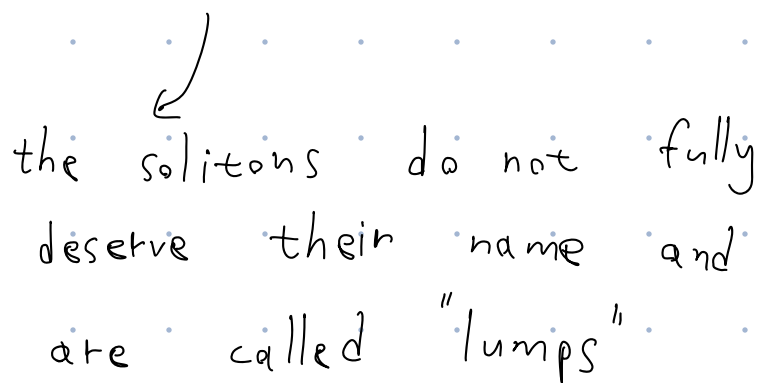 the solitons do not fully
deserve their name and
are called "lumps"